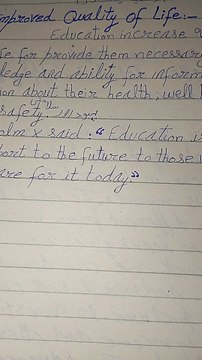 mproved Quality of Life:-
Education increase q
fe for provide them necessary
ledge and ability for inform
ion about their health, well b
safety.
olm x said :“Education is
port to the future to those
are for it today.”